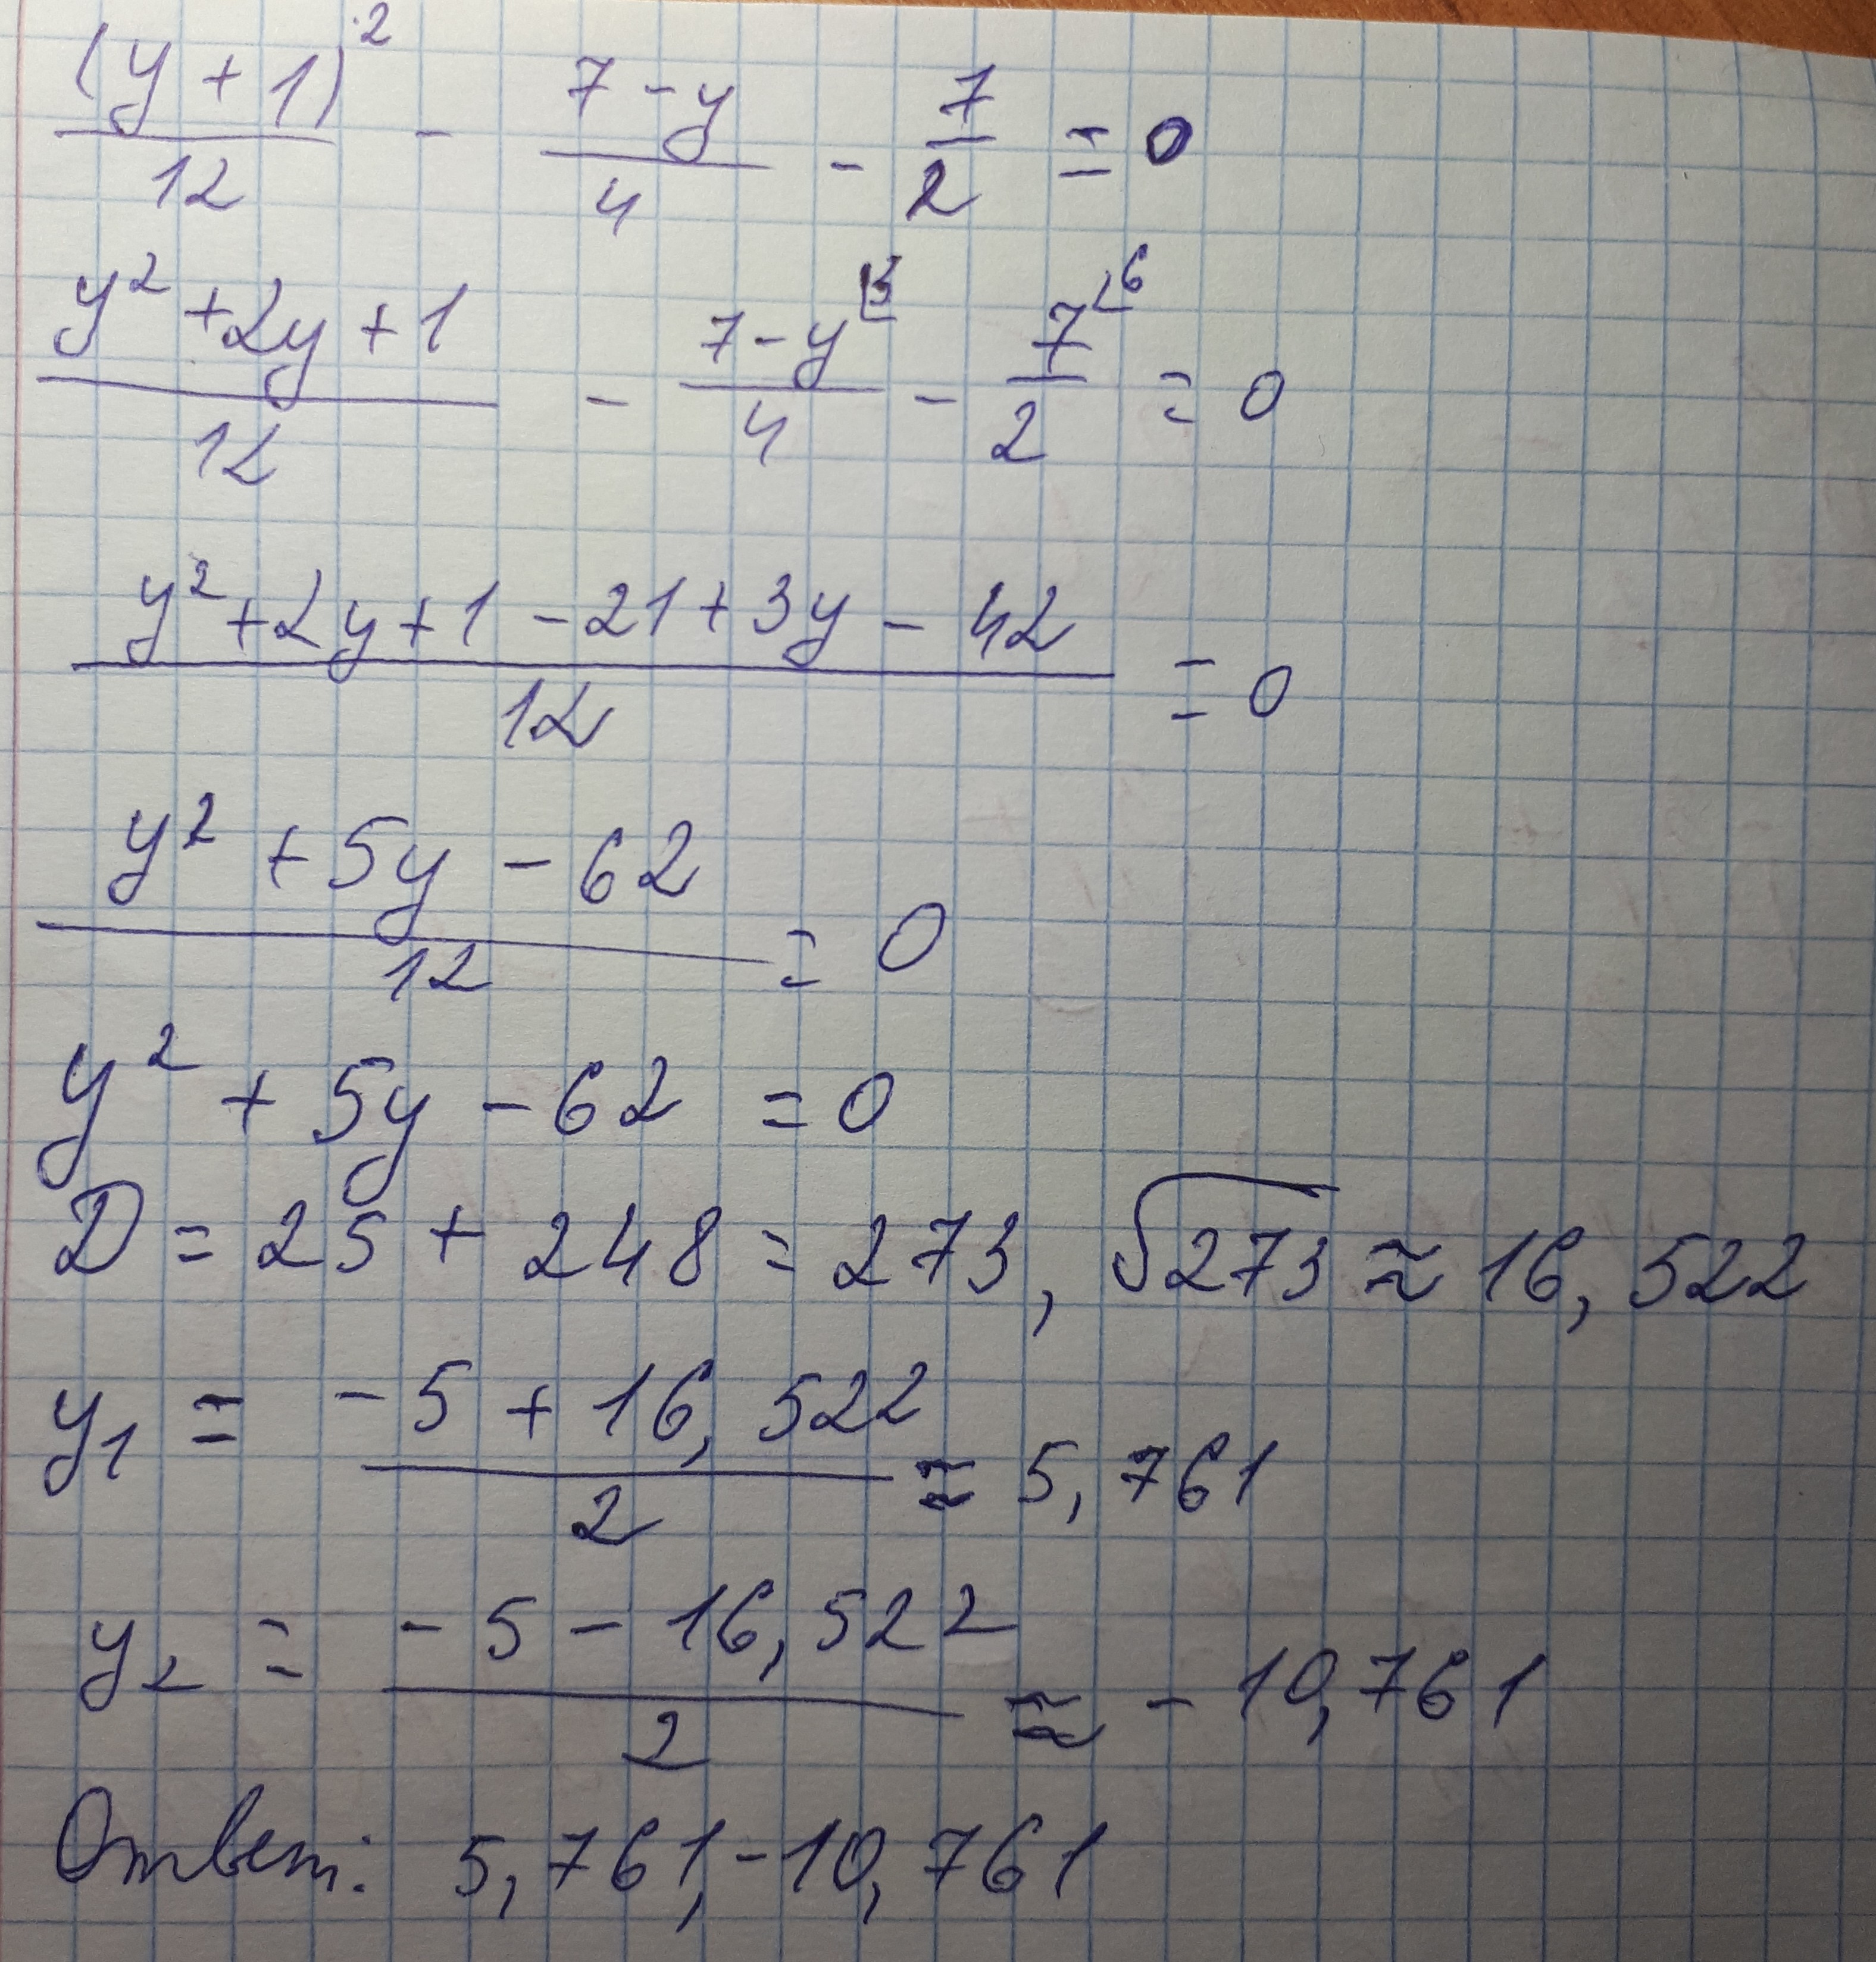 (y+1)²/12 - 7-y/4 - 7/2 = 0
y²+2y+1/12 - 7-y/4 ⌊3 - 7/2 ⌊6 = 0
y²+2y+1-21+3y-42/12 = 0
y²+5y-62/12 = 0
y²+5y-62=0
D=25+248=273, √273≈16,522
y₁ = -5+16,522/2 ≈ 5,761
y₂ = -5-16,522/2 ≈ -10,761
Ответ: 5,761,-10,761